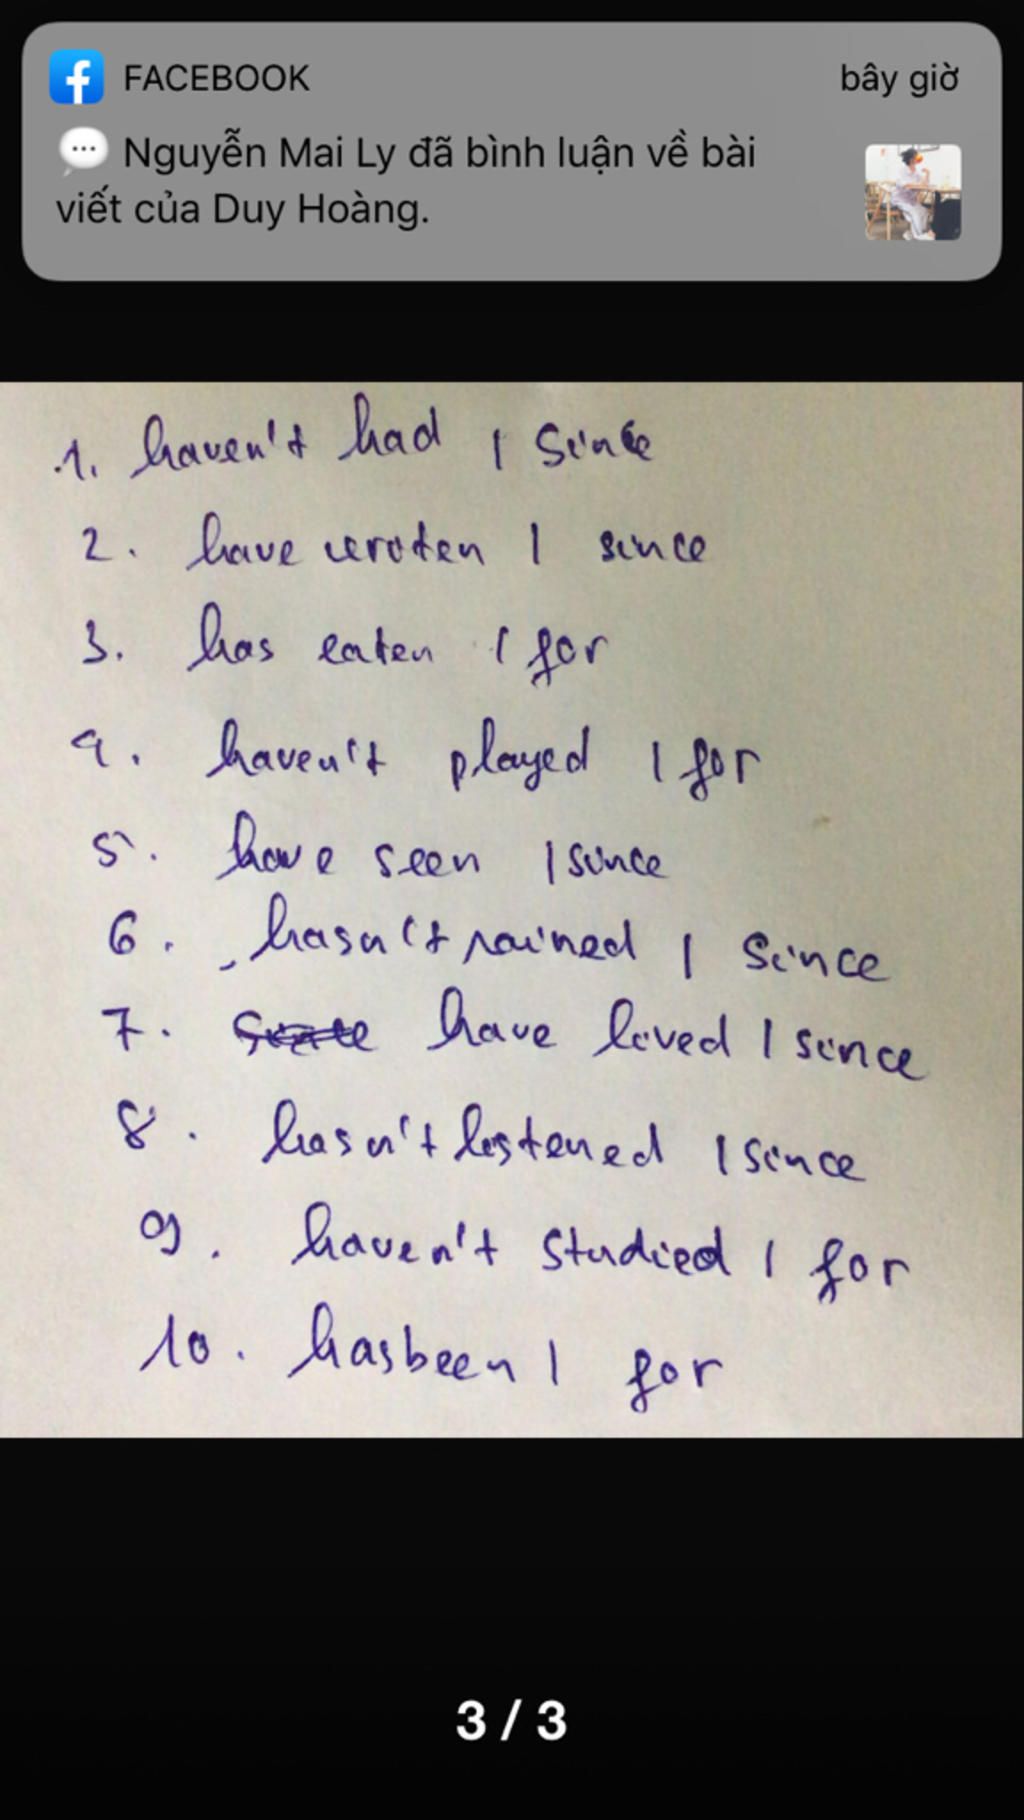 FACEBOOK
bây giờ
Nguyễn Mai Ly đã bình luận về bài
viết của Duy Hoàng.
1. haven't had | since
2. have wroten | since
3. has eaten | for
4. haven't played | for
5. have seen | since
6. hasn't rained | since
7. have lived | since
8. hasn't listened | since
9. haven't studied | for
10. has been | for
3 / 3